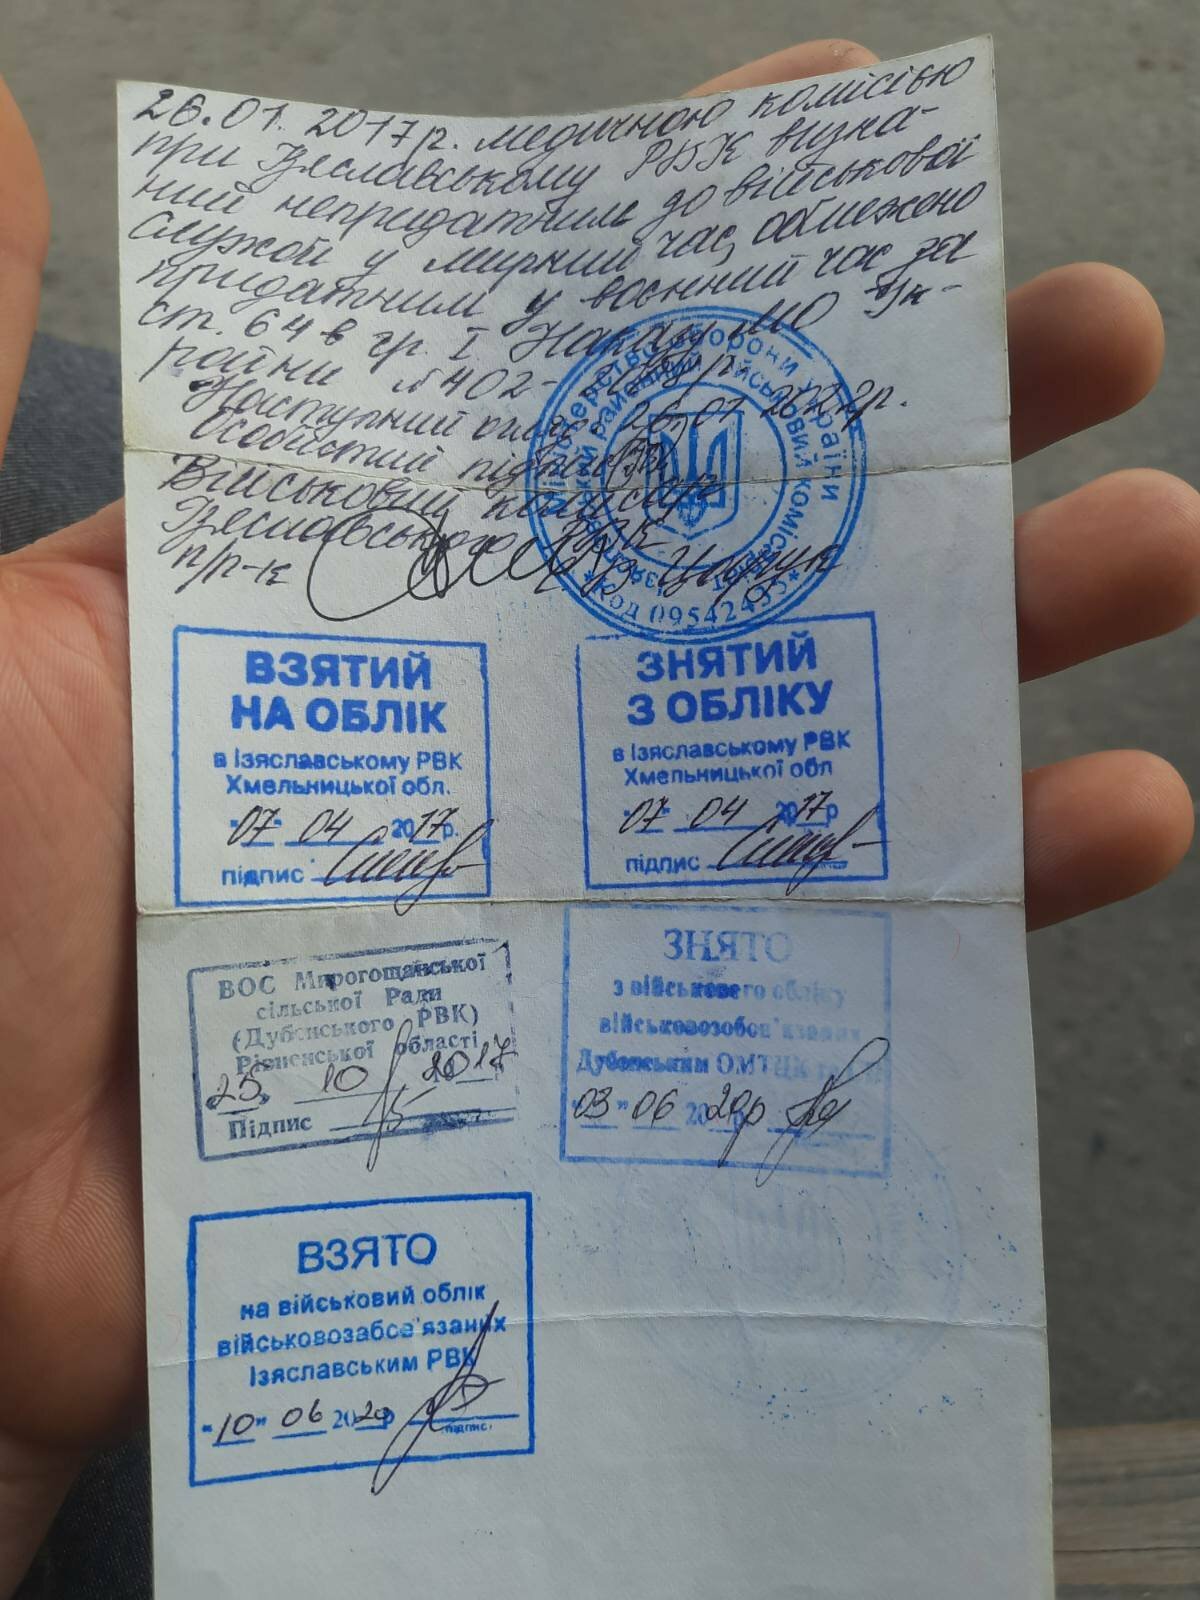 26.01.2017р. медичною комісією
при Ізяславському РВК визна-
ний непридатним до військової
служби у мирний час, обмежено
придатним у воєнний час за
ст. 64в гр. I Наказу МО Ук-
раїни №402-
Наступний огляд 26.01.2022р.
Особистий підпис
Військовий комісар
Ізяславського РВК
п/п-к
Міністерство оборони України
районний військовий комісаріат
* Код 09542495 *
ВЗЯТИЙ
НА ОБЛІК
в Ізяславському РВК
Хмельницької обл.
"07" 04 2017р.
підпис
ЗНЯТИЙ
З ОБЛІКУ
в Ізяславському РВК
Хмельницької обл
"07" 04 2017р
підпис
ВОС Мирогощанської
сільської Ради
(Дубенського РВК)
Рівненської області
"25" 10 2017
Підпис
ЗНЯТО
з військового обліку
військовозобов'язаних
Дубенським ОМТЦК
"03" 06 2020р
ВЗЯТО
на військовий облік
військовозабов'язаних
Ізяславським РВК
"10" 06 2020р
підпис